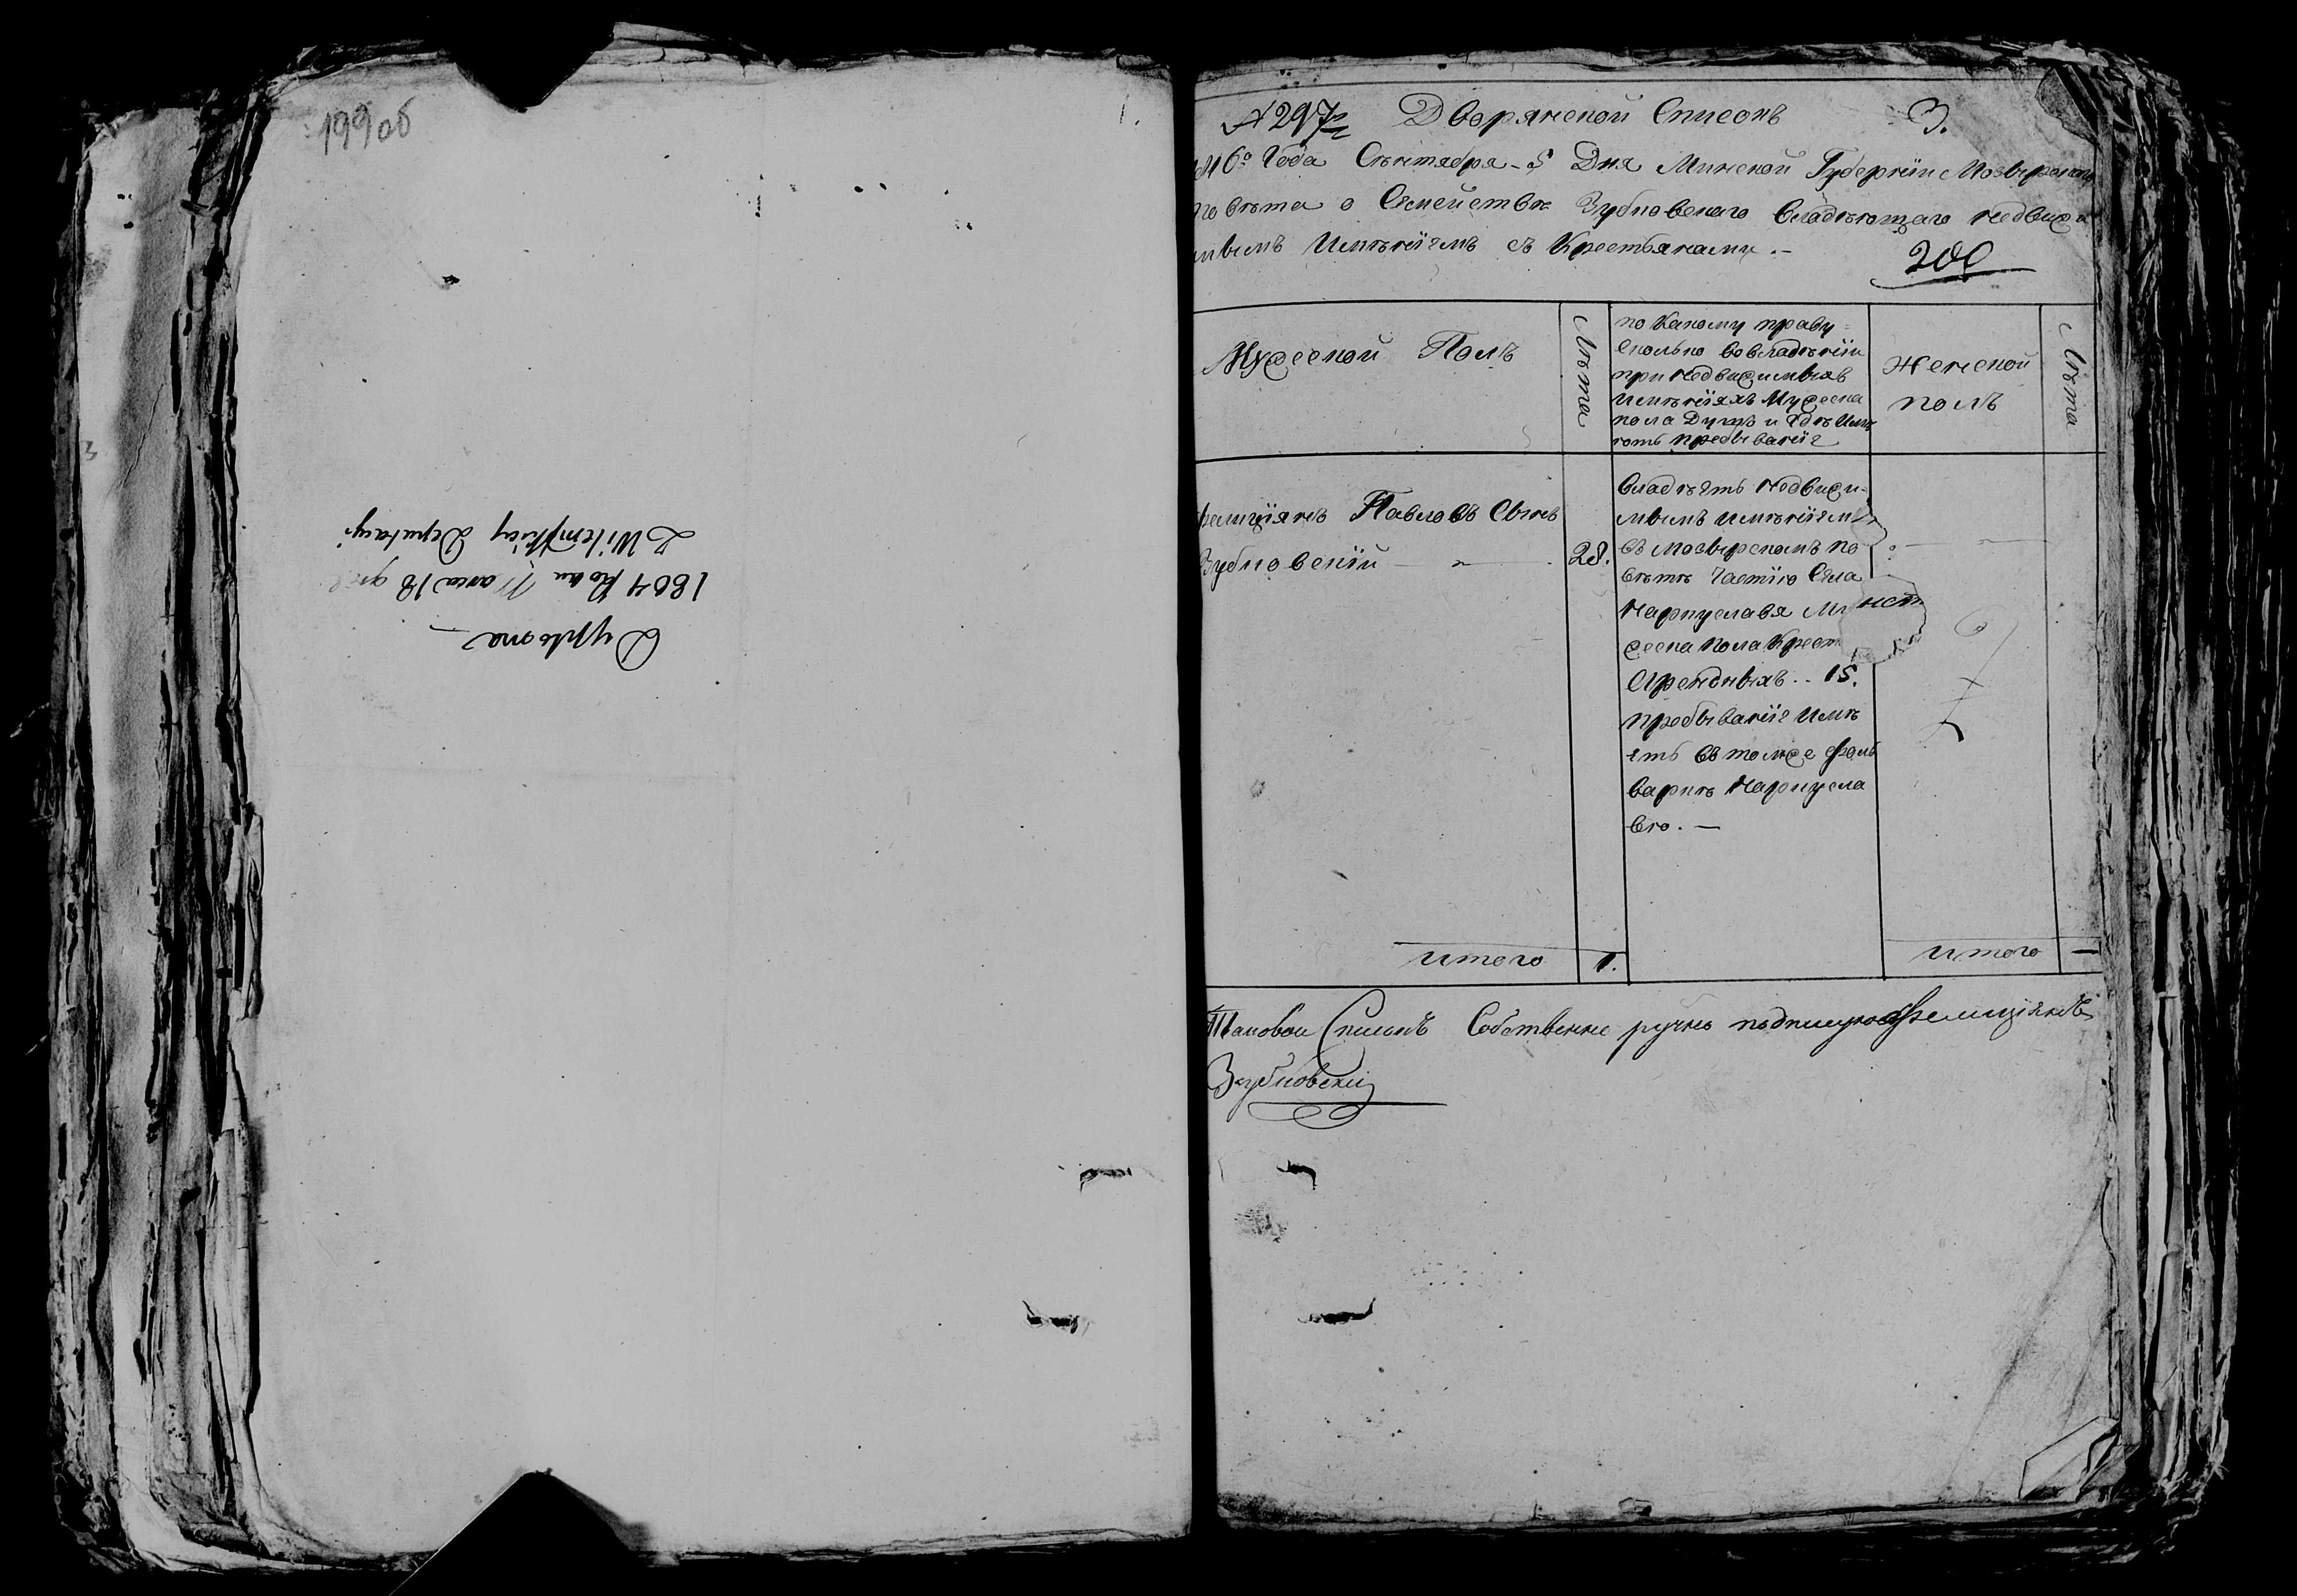 199об
1.
Dyploma
1804 Roku Marca 18
Z Wileńskiey Deputacyi
№ 297 Дворянской Списокъ 3.
6го Года Сентября 5 Дня Минской Губернiи Мозырскаго
повѣта о Семействѣ Зубковскаго Владѣющаго недвижи
мымъ Имѣнiемъ съ Крестьянами.—
200
Мужеской Полъ
Лѣта
по Какому праву
Сколько во владѣнiи
при недвижимыхъ
Имѣнiяхъ Мужеска
пола Душъ и Гдѣ Имѣ
ютъ пребыванiе
Женской
полъ
Лѣта
Фелицiянъ Павловъ Сынъ
Зубковскiй — 28.
Владѣетъ недвижи-
мымъ имѣнiемъ
въ Мозырскомъ по
вѣтѣ Частiю Села
Наркуславя
жеска пола Крест
Арендныхъ .. 15.
пребыванiе имѣ
етъ въ томже фоль
варкѣ Наркусла
вѣ. —
итого 1.
итого —
Таковой Списокъ Собственно ручно подписую Фелицiянъ
Зубковскiй